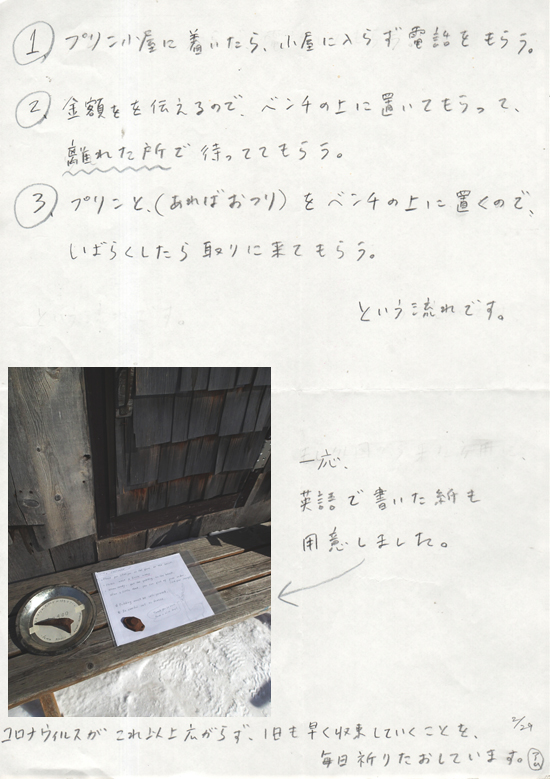 ① プリン小屋に着いたら、小屋に入らず電話をもらう。
② 金額をを伝えるので、ベンチの上に置いてもらって、
離れた所で待っててもらう。
③ プリンと、(あればおつり)をベンチの上に置くので、
しばらくしたら取りに来てもらう。
という流れです。
一応、
英語で書いた紙も
用意しました。
2/29
コロナウィルスがこれ以上広がらず、1日も早く収束していくことを、
毎日祈りたおしています。